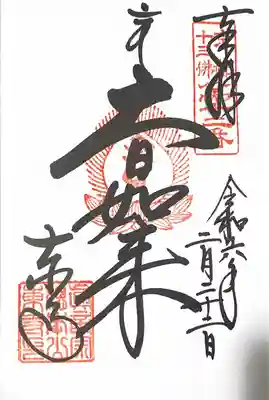 奉拝
十三佛
第十二番
大日如来
東寺
令和六年
二月二十二日